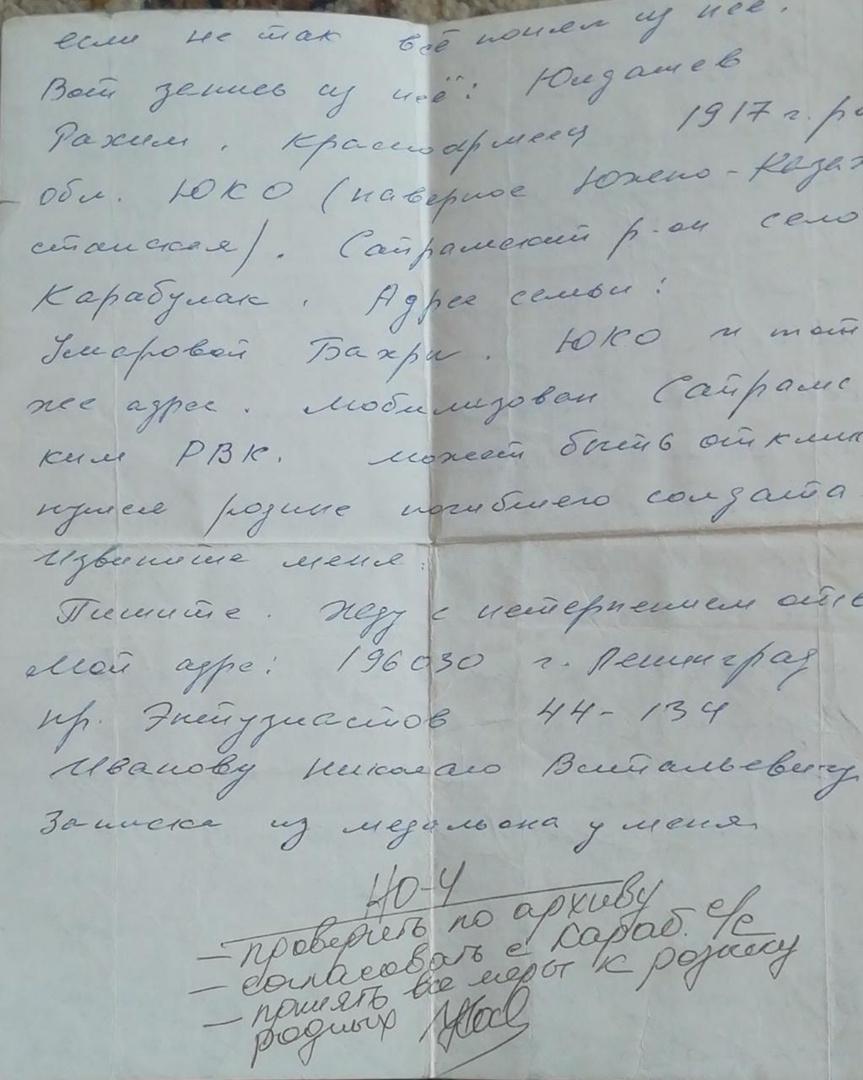 если не так всё понял из неё.
Вот запись из неё: Юлдашев
Рахим. Красноармеец 1917 г. ро
обл. ЮКО (наверное Южно-Казах
станская). Сайрамский р-он село
Карабулак. Адрес семьи:
Умаровой Бахри. ЮКО и тот
же адрес. Мобилизован Сайрамс
ким РВК. Может быть отклик
нутся родные погибшего солдата
Извините меня.
Пишите. Жду с нетерпением отв
Мой адрес: 196030 г. Ленинград
пр. Энтузиастов 44-134
Иванову Николаю Витальевичу
Записка из медальона у меня
НО-4
— проверить по архиву
— согласовать с Караб. с/с
— принять все меры к розыску
родных